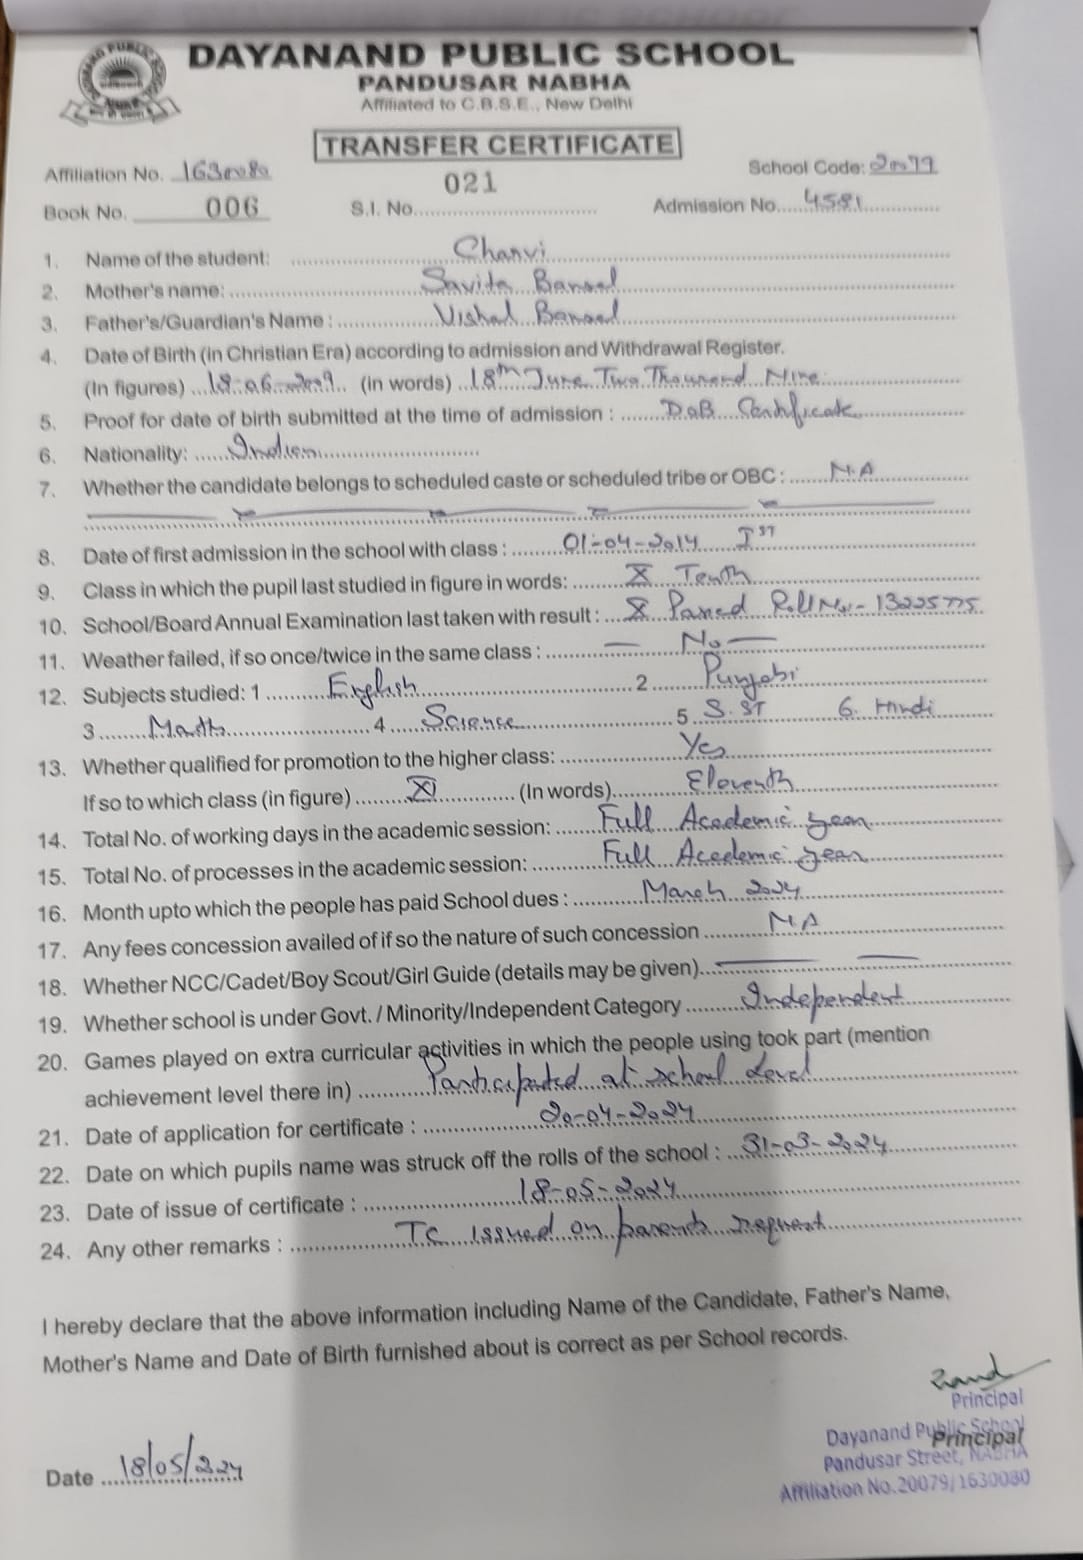 DAYANAND PUBLIC SCHOOL
PANDUSAR NABHA
Affiliated to C.B.S.E., New Delhi
TRANSFER CERTIFICATE
Affiliation No. 1630080 School Code: 20079
Book No. 006 S.I. No. 021 Admission No. 4581
1. Name of the student: Charvi
2. Mother's name: Savita Bansal
3. Father's/Guardian's Name : Vishal Bansal
4. Date of Birth (in Christian Era) according to admission and Withdrawal Register.
(In figures) 18-06-2009 (in words) 18th June Two Thousand Nine
5. Proof for date of birth submitted at the time of admission : DOB Certificate
6. Nationality: Indian
7. Whether the candidate belongs to scheduled caste or scheduled tribe or OBC : N.A
8. Date of first admission in the school with class : 01-04-2014 IST
9. Class in which the pupil last studied in figure in words: X Tenth
10. School/Board Annual Examination last taken with result : X Passed Roll No- 13225775
11. Weather failed, if so once/twice in the same class : No
12. Subjects studied: 1 English 2 Punjabi
3 Math 4 Science 5 S.ST 6. Hindi
13. Whether qualified for promotion to the higher class: Yes
If so to which class (in figure) XI (In words) Eleventh
14. Total No. of working days in the academic session: Full Academic year
15. Total No. of processes in the academic session: Full Academic year
16. Month upto which the people has paid School dues : March 2024
17. Any fees concession availed of if so the nature of such concession N.A
18. Whether NCC/Cadet/Boy Scout/Girl Guide (details may be given)
19. Whether school is under Govt. / Minority/Independent Category Independent
20. Games played on extra curricular activities in which the people using took part (mention
achievement level there in) Participated at school Level
21. Date of application for certificate : 20-04-2024
22. Date on which pupils name was struck off the rolls of the school : 31-03-2024
23. Date of issue of certificate : 18-05-2024
24. Any other remarks : TC Issued on parents request
I hereby declare that the above information including Name of the Candidate, Father's Name,
Mother's Name and Date of Birth furnished about is correct as per School records.
Principal
Dayanand Public School
Principal
Pandusar Street, NABHA
Affiliation No.20079/1630080
Date 18/05/2024